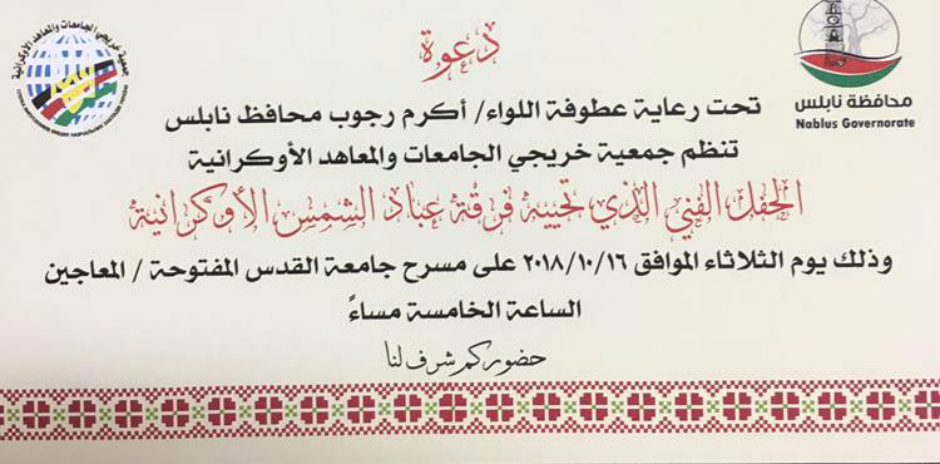 دعوة
تحت رعاية عطوفة اللواء/ أكرم رجوب محافظ نابلس
تنظم جمعية خريجي الجامعات والمعاهد الأوكرانية
الحفل الفني الذي تحييه فرقة عباد الشمس الأوكرانية
وذلك يوم الثلاثاء الموافق ٢٠١٨/١٠/١٦ على مسرح جامعة القدس المفتوحة / المعاجين
الساعة الخامسة مساءً
حضوركم شرف لنا
محافظة نابلس
Nablus Governorate
جمعية خريجي الجامعات والمعاهد الأوكرانية